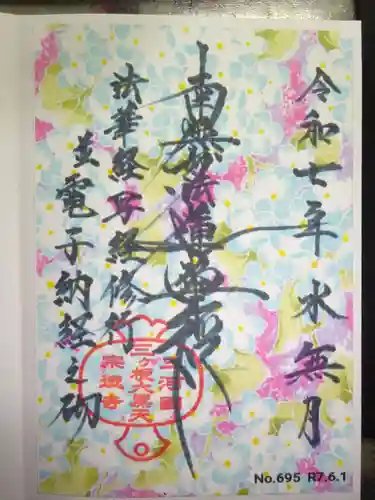 令和七年水無月
南無妙法蓮華経
法華経写経修行
並電子納経之砌
三河國
三ヶ根大黒天
宗徧寺
No.695 R7.6.1